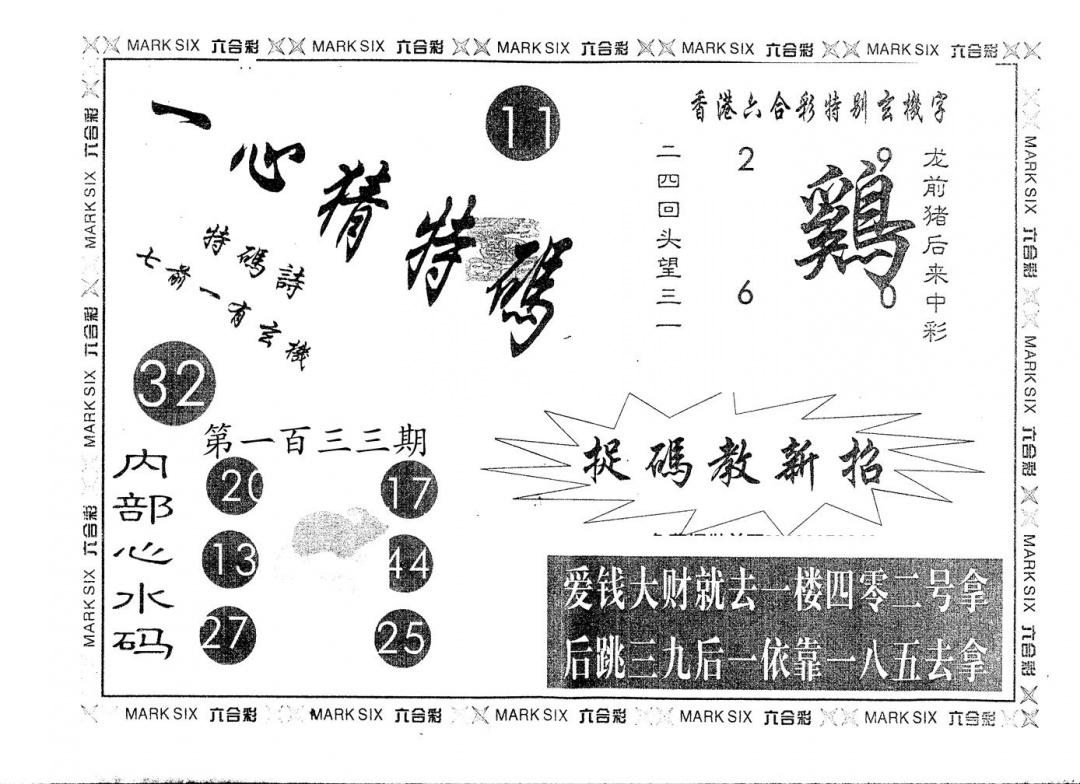 MARK SIX 六合彩 MARK SIX 六合彩 MARK SIX 六合彩 MARK SIX 六合彩 MARK SIX 六合彩
MARK SIX 六合彩 MARK SIX 六合彩 MARK SIX 六合彩
一心猜特碼
11
特碼詩
七前一有玄機
32
香港六合彩特别玄機字
二四回头望三一
2
6
9
鷄
0
龙前猪后来中彩
第一百三三期
内部心水码
20 17
13 44
27 25
捉碼教新招
爱钱大财就去一楼四零二号拿
后跳三九后一依靠一八五去拿
MARK SIX 六合彩 MARK SIX 六合彩 MARK SIX 六合彩
MARK SIX 六合彩 MARK SIX 六合彩 MARK SIX 六合彩 MARK SIX 六合彩 MARK SIX 六合彩